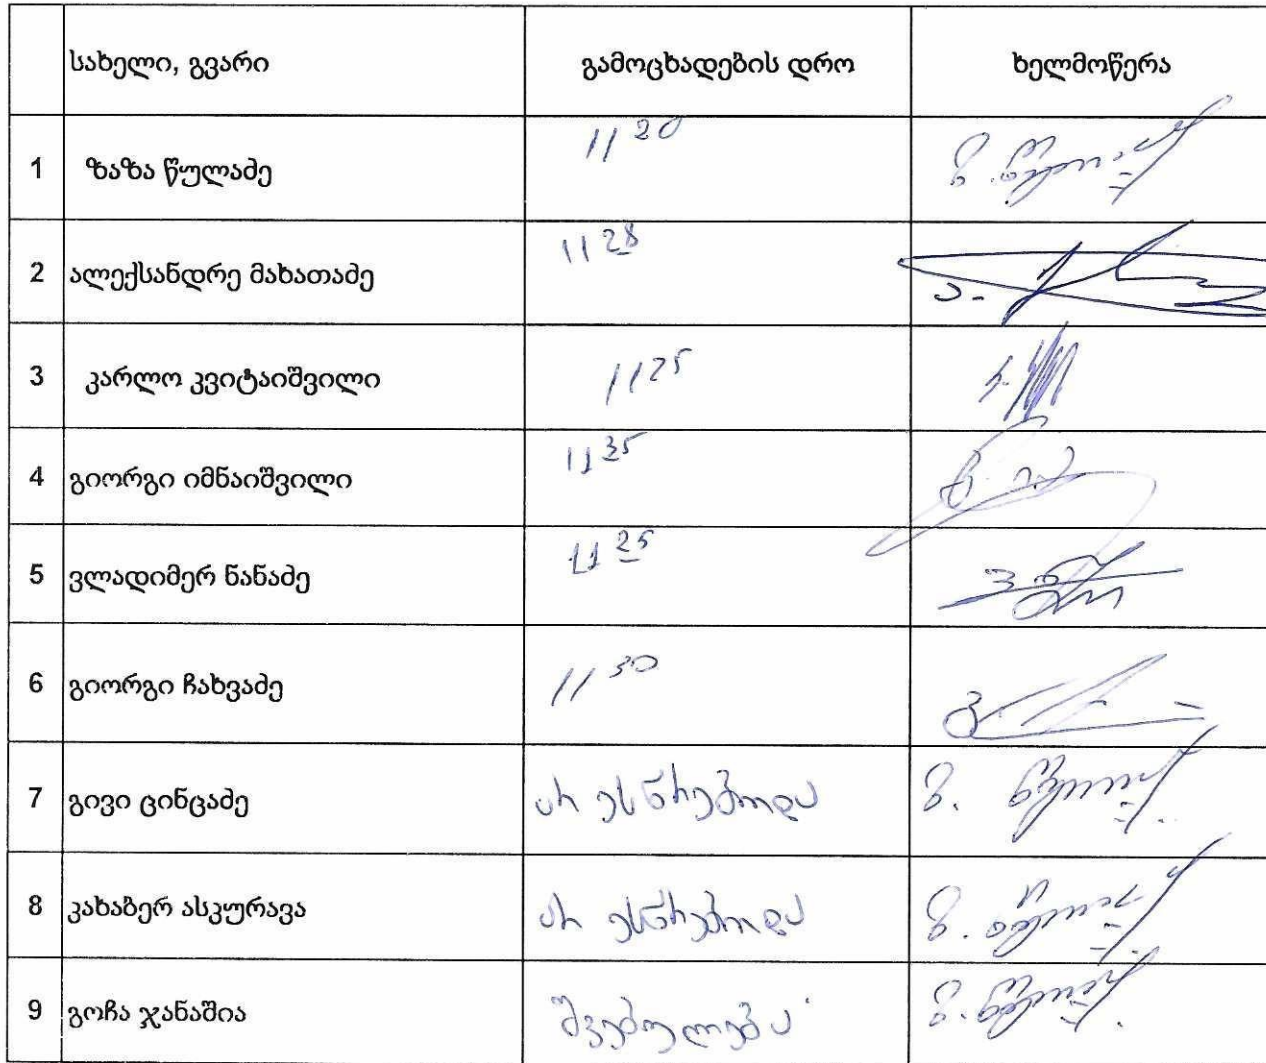 სახელი, გვარი გამოცხადების დრო ხელმოწერა
1 ზაზა წულაძე 11 20
2 ალექსანდრე მახათაძე 11 28
3 კარლო კვიტაიშვილი 11 25
4 გიორგი იმნაიშვილი 11 35
5 ვლადიმერ ნანაძე 11 25
6 გიორგი ჩახვაძე 11 30
7 გივი ცინცაძე არ ესწრებოდა
8 კახაბერ ასკურავა არ ესწრებოდა
9 გოჩა ჯანაშია შვებულება